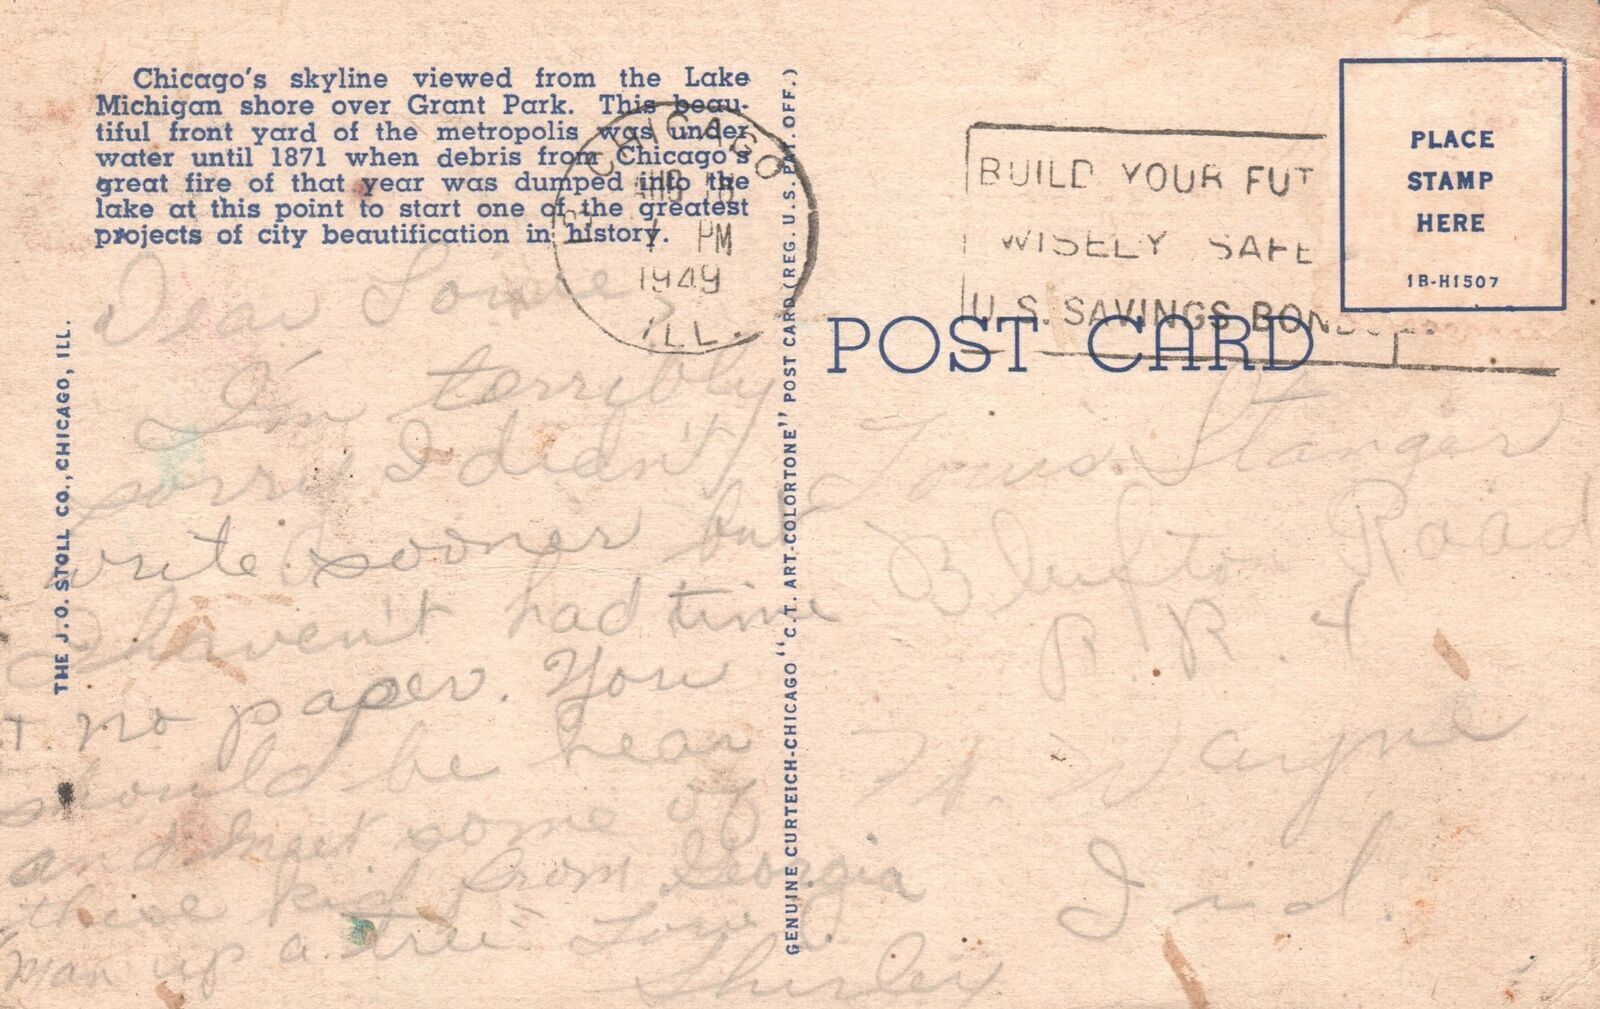 Chicago's skyline viewed from the Lake
Michigan shore over Grant Park. This beau-
tiful front yard of the metropolis was under
water until 1871 when debris from Chicago's
great fire of that year was dumped into the
lake at this point to start one of the greatest
projects of city beautification in history.
THE J. O. STOLL CO., CHICAGO, ILL.
CHICAGO
AUG
PM
1949
ILL.
BUILD YOUR FUT
WISELY SAFE
U.S. SAVINGS BONDS
PLACE
STAMP
HERE
1B-H1507
POST CARD
GENUINE CURTEICH-CHICAGO "C.T. ART-COLORTONE" POST CARD (REG. U.S. PAT. OFF.)
Dear Louie,
I'm terribly
sorry I didn't
write sooner but
I haven't had time
no paper. You
should be hear
and meet some of
these kids from Georgia
"Man up a tree" Love
Shirley
Louis Stanger
Blufton Road
R.R. 4
Ft. Wayne
Ind.